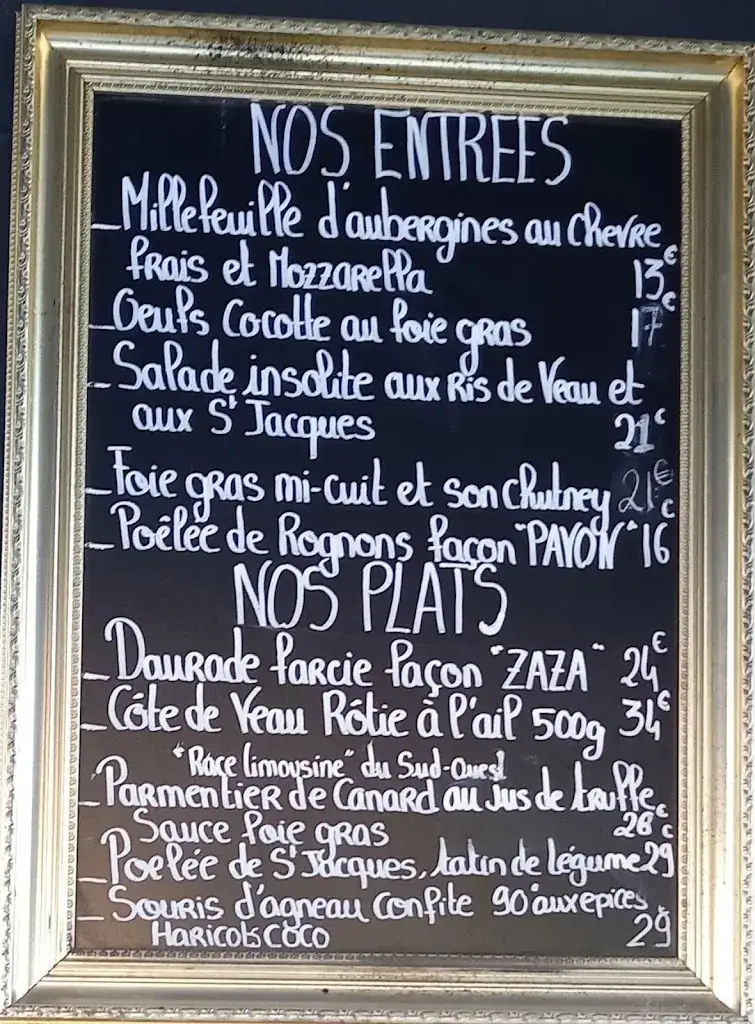 NOS ENTREES
_ Millefeuille d'aubergines au chevre
frais et Mozzarella 13€
_ Oeufs Cocotte au foie gras 17€
_ Salade insolite aux Ris de Veau et
aux St Jacques 21€
_ Foie gras mi-cuit et son chutney 21€
_ Poêlée de Rognons façon "PAYOU" 16€
NOS PLATS
_ Daurade farcie façon "ZAZA" 24€
_ Côte de Veau Rôtie à l'ail 500g 34€
"Race limousine" du Sud-Ouest
_ Parmentier de Canard au Jus de truffe
Sauce foie gras 26€
_ Poelée de St Jacques, tatin de légume 29€
_ Souris d'agneau confite 90° aux epices
Haricots coco 29€